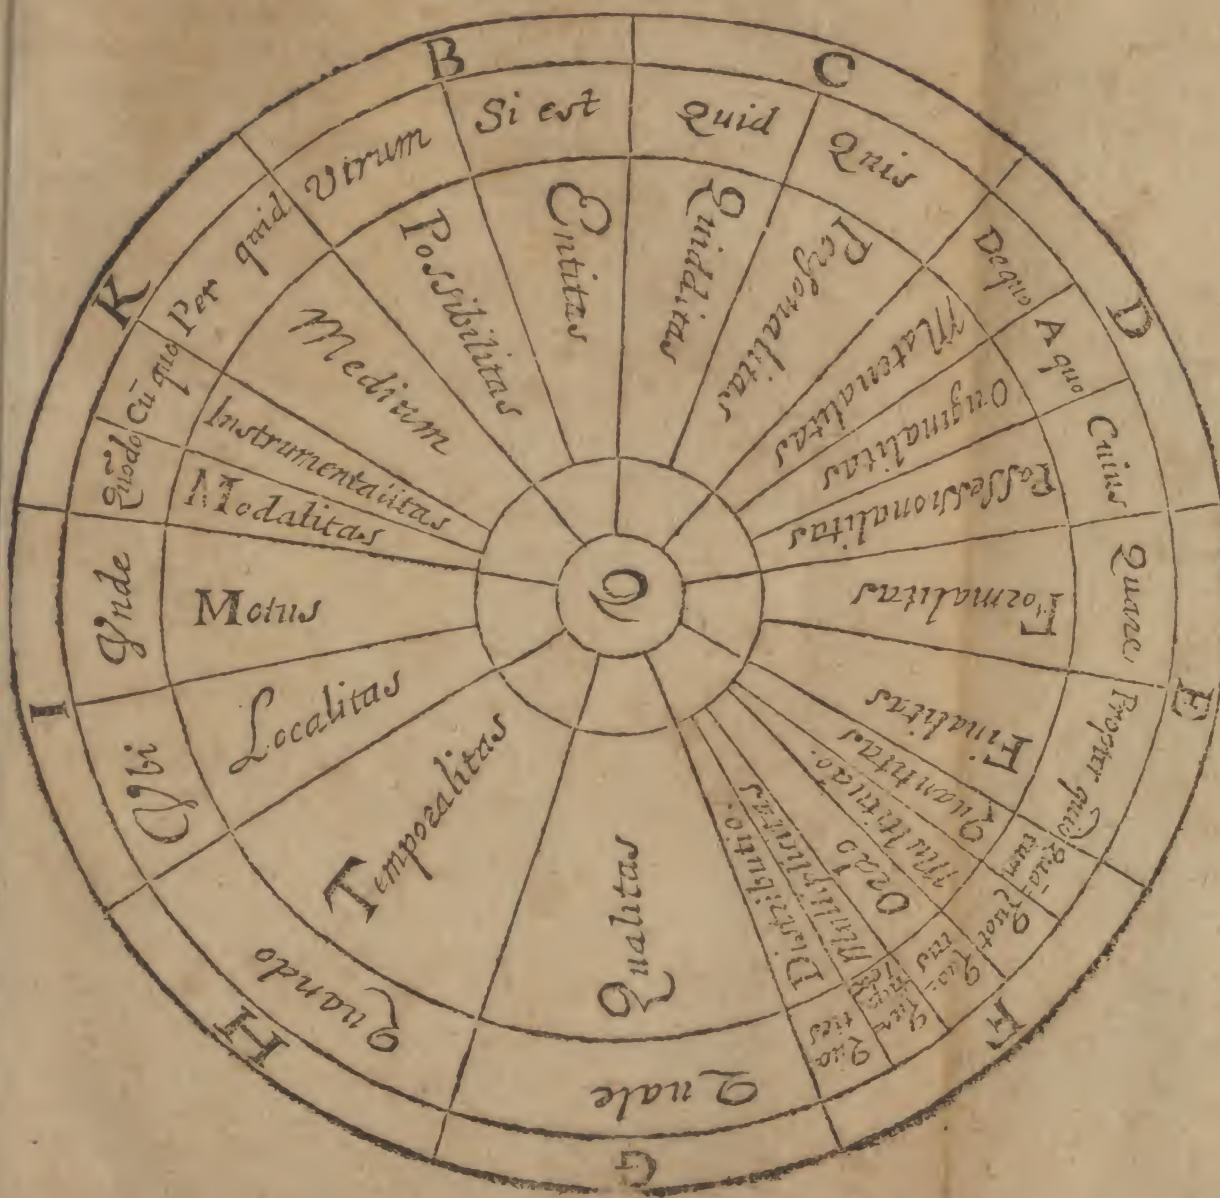 B
C
D
E
F
G
H
I
K
Utrum
Si est
Quid
Quis
De quo
A quo
Cuius
Quare
Propter quid
Quā-
tum
Quot
Quo-
tus
Quo
ties
Quale
Quando
Vbi
Vnde
Quōdo
Cū quo
Per quid
Possibilitas
Entitas
Quidditas
Personalitas
Materialitas
Originalitas
Possessionalitas
Formalitas
Finalitas
Quantitas
Multitudo
Ordo
Multiplicitas
Distributio
Qualitas
Temporalitas
Localitas
Motus
Modalitas
Instrumentalitas
Medium
Q